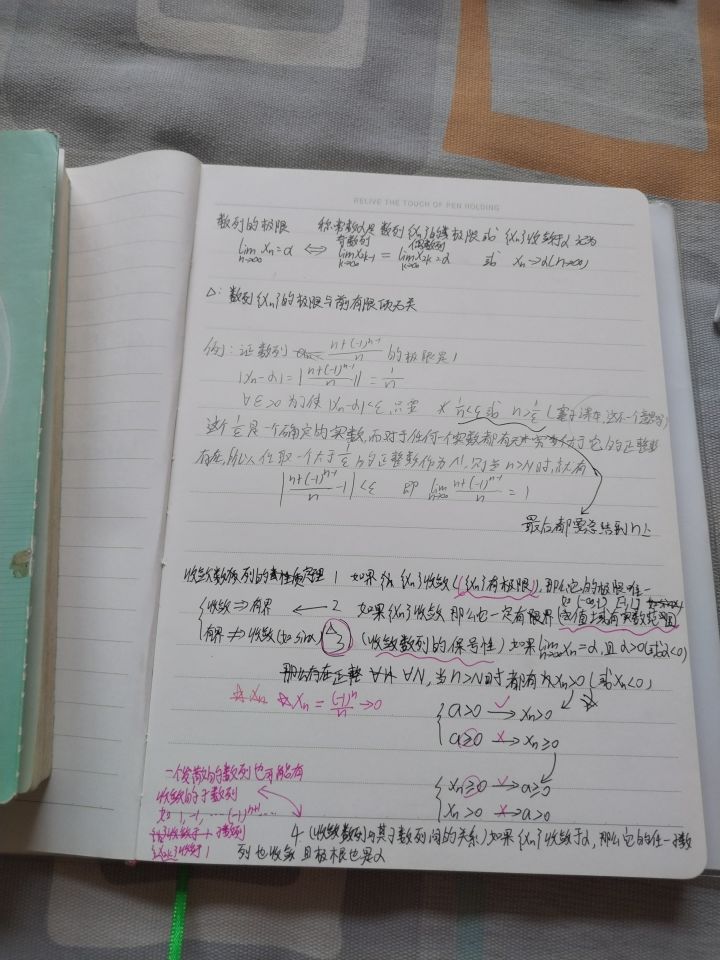 RELIVE THE TOUCH OF PEN HOLDING
数列的极限 称常数a是数列{xn}的极限 或 {xn}收敛于a 记为
奇数列 偶数列
lim n→∞ xn=a ⇔ lim k→∞ x2k-1 = lim k→∞ x2k=a 或 xn→a(n→∞)
△: 数列{xn}的极限与前有限项无关
例:证数列 (n+(-1)^(n-1))/n 的极限是1
|xn-a|=|(n+(-1)^(n-1))/n -1|=1/n
∀ε>0 为了使|xn-a|<ε,只要 1/n<ε或 n>1/ε
这个1/ε是一个确定的实数,而对于任何一个实数都有大于它的正整数
存在,所以任取一个大于1/ε的正整数作为N,则当n>N时,就有
|(n+(-1)^(n-1))/n -1|<ε 即 lim n→∞ (n+(-1)^(n-1))/n =1
最后都要总结到n上
收敛数列的性质定理 1 如果 {xn}收敛({xn}有极限),那么它的极限唯一
{收敛⇒有界 ← 2 如果{xn}收敛 那么它一定有限界
有界⇏收敛(如sinx) △3 (收敛数列的保号性)如果lim n→∞ xn=a,且a>0(或a<0)
那么存在正整 N,当n>N时都有xn>0(或xn<0)
☆ xn=(-1)^n/n→0
{a>0 ✓→ xn>0
a≥0 ×→ xn≥0
{xn≥0 ✓→ a≥0
xn>0 ×→ a>0
一个发散的数列也可能有
收敛的子数列
如 1,-1,…(-1)^(n+1)…
4 (收敛数列与其子数列间的关系)如果{xn}收敛于a,那么它的任一子数
列也收敛 且极限也是a